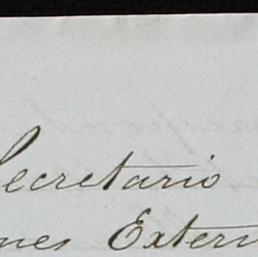 Secretario
nes Extern